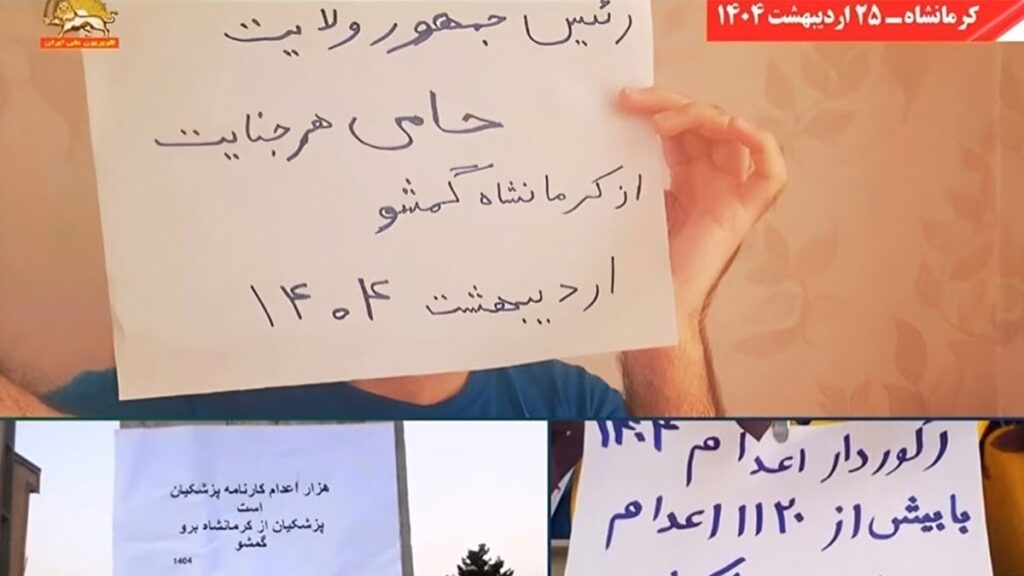 کرمانشاه ـ ۲۵ اردیبهشت ۱۴۰۴
تلویزیون ملی ایران
رئیس جمهور ولایت
حامی هر جنایت
از کرمانشاه گمشو
اردیبهشت ۱۴۰۴
هزار اعدام کارنامه پزشکیان
است
پزشکیان از کرمانشاه برو
گمشو
1404
رکوردار اعدام ۱۴۰۴
با بیش از ۱۱۲۰ اعدام